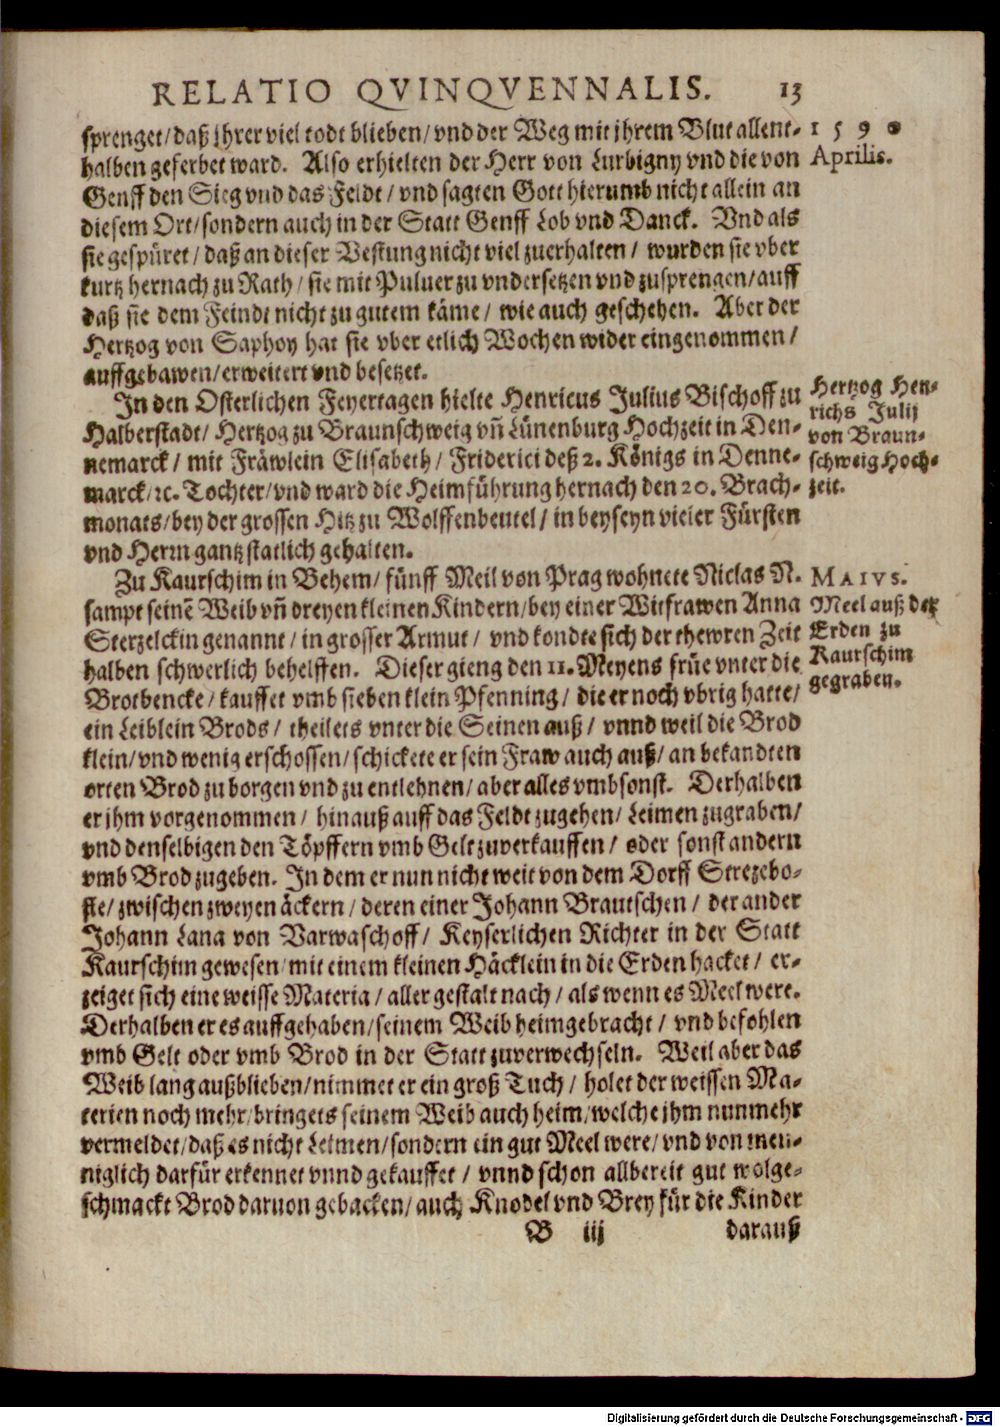 RELATIO QVINQVENNALIS. 13
sprenget/daß jhrer viel todt blieben/vnd der Weg mit jhrem Blut allent-
halben geferbet ward. Also erhielten der Herr von Lurbigny vnd die von
Genff den Sieg vnd das Feldt/vnd sagten Gott hierumb nicht allein an
diesem Ort/sondern auch in der Statt Genff Lob vnd Danck. Vnd als
sie gespüret/daß an dieser Vestung nicht viel zuerhalten/ wurden sie vber
kurtz hernach zu Rath/sie mit Puluer zu vndersetzen vnd zusprengen/auff
daß sie dem Feinde nicht zu gutem käme/ wie auch geschehen. Aber der
Hertzog von Saphoy hat sie vber etlich Wochen wider eingenommen/
auffgebawen/erweitert vnd besetzet.
1590
Aprilis.
In den Osterlichen Feyertagen hielte Henricus Julius Bischoff zu
Halberstadt/Hertzog zu Braunschweig vñ Lünenburg Hochzeit in Den-
nemarck/mit Fräwlein Elisabeth/ Friderici deß 2. Königs in Denne-
marck/ꝛc. Tochter/vnd ward die Heimführung hernach den 20. Brach-
monats/bey der grossen Hitz zu Wolffenbeutel/in beyseyn vieler Fürsten
vnd Herrn gantz statlich gehalten.
Hertzog Hen-
richs Julij
von Braun-
schweig Hoch-
zeit.
Zu Kaurschim in Behem/fünff Meil von Prag wohnete Niclas N.
sampt seinē Weib vñ dreyen kleinen Kindern/bey einer Witfrawen Anna
Sterzelckin genannt/in grosser Armut/ vnd kondte sich der thewren Zeit
halben schwerlich behelffen. Dieser gieng den 11. Meyens früe vnter die
Brotbencke/kauffet vmb sieben klein Pfenning/die er noch vbrig hatte/
ein Leiblein Brods/ theilets vnter die Seinen auß/ vnnd weil die Brod
klein/vnd wenig erschossen/schickete er sein Fraw auch auß/an bekandten
orten Brod zu borgen vnd zu entlehnen/aber alles vmbsonst. Derhalben
er jhm vorgenommen/ hinauß auff das Feldt zugehen/Leimen zugraben/
vnd denselbigen den Töpffern vmb Gelt zuverkauffen/ oder sonst andern
vmb Brod zugeben. In dem er nun nicht weit von dem Dorff Strezebo-
ste/zwischen zweyen äckern/deren einer Johann Brautschen/ der ander
Johann Lana von Varwaschoff/ Keyserlichen Richter in der Statt
Kaurschim gewesen/mit einem kleinen Häcklein in die Erden hacket/ er-
zeiget sich eine weisse Materia/aller gestalt nach/als wenn es Meel were.
Derhalben er es auffgehaben/seinem Weib heimgebracht/ vnd befohlen
vmb Gelt oder vmb Brod in der Statt zuverwechseln. Weil aber das
Weib lang außblieben/nimmet er ein groß Tuch/holet der weissen Ma-
terien noch mehr/bringets seinem Weib auch heim/welche jhm nunmehr
vermeldet/daß es nicht Leimen/sondern ein gut Meel were/vnd von men-
niglich darfür erkennet vnnd gekauffet/ vnnd schon allbereit gut wolge-
schmackt Brod daruon gebacken/auch Knodel vnd Brey für die Kinder
MAIVS.
Meel auß der
Erden zu
Kaurschim
gegraben.
B iij darauß
Digitalisierung gefördert durch die Deutsche Forschungsgemeinschaft - DFG